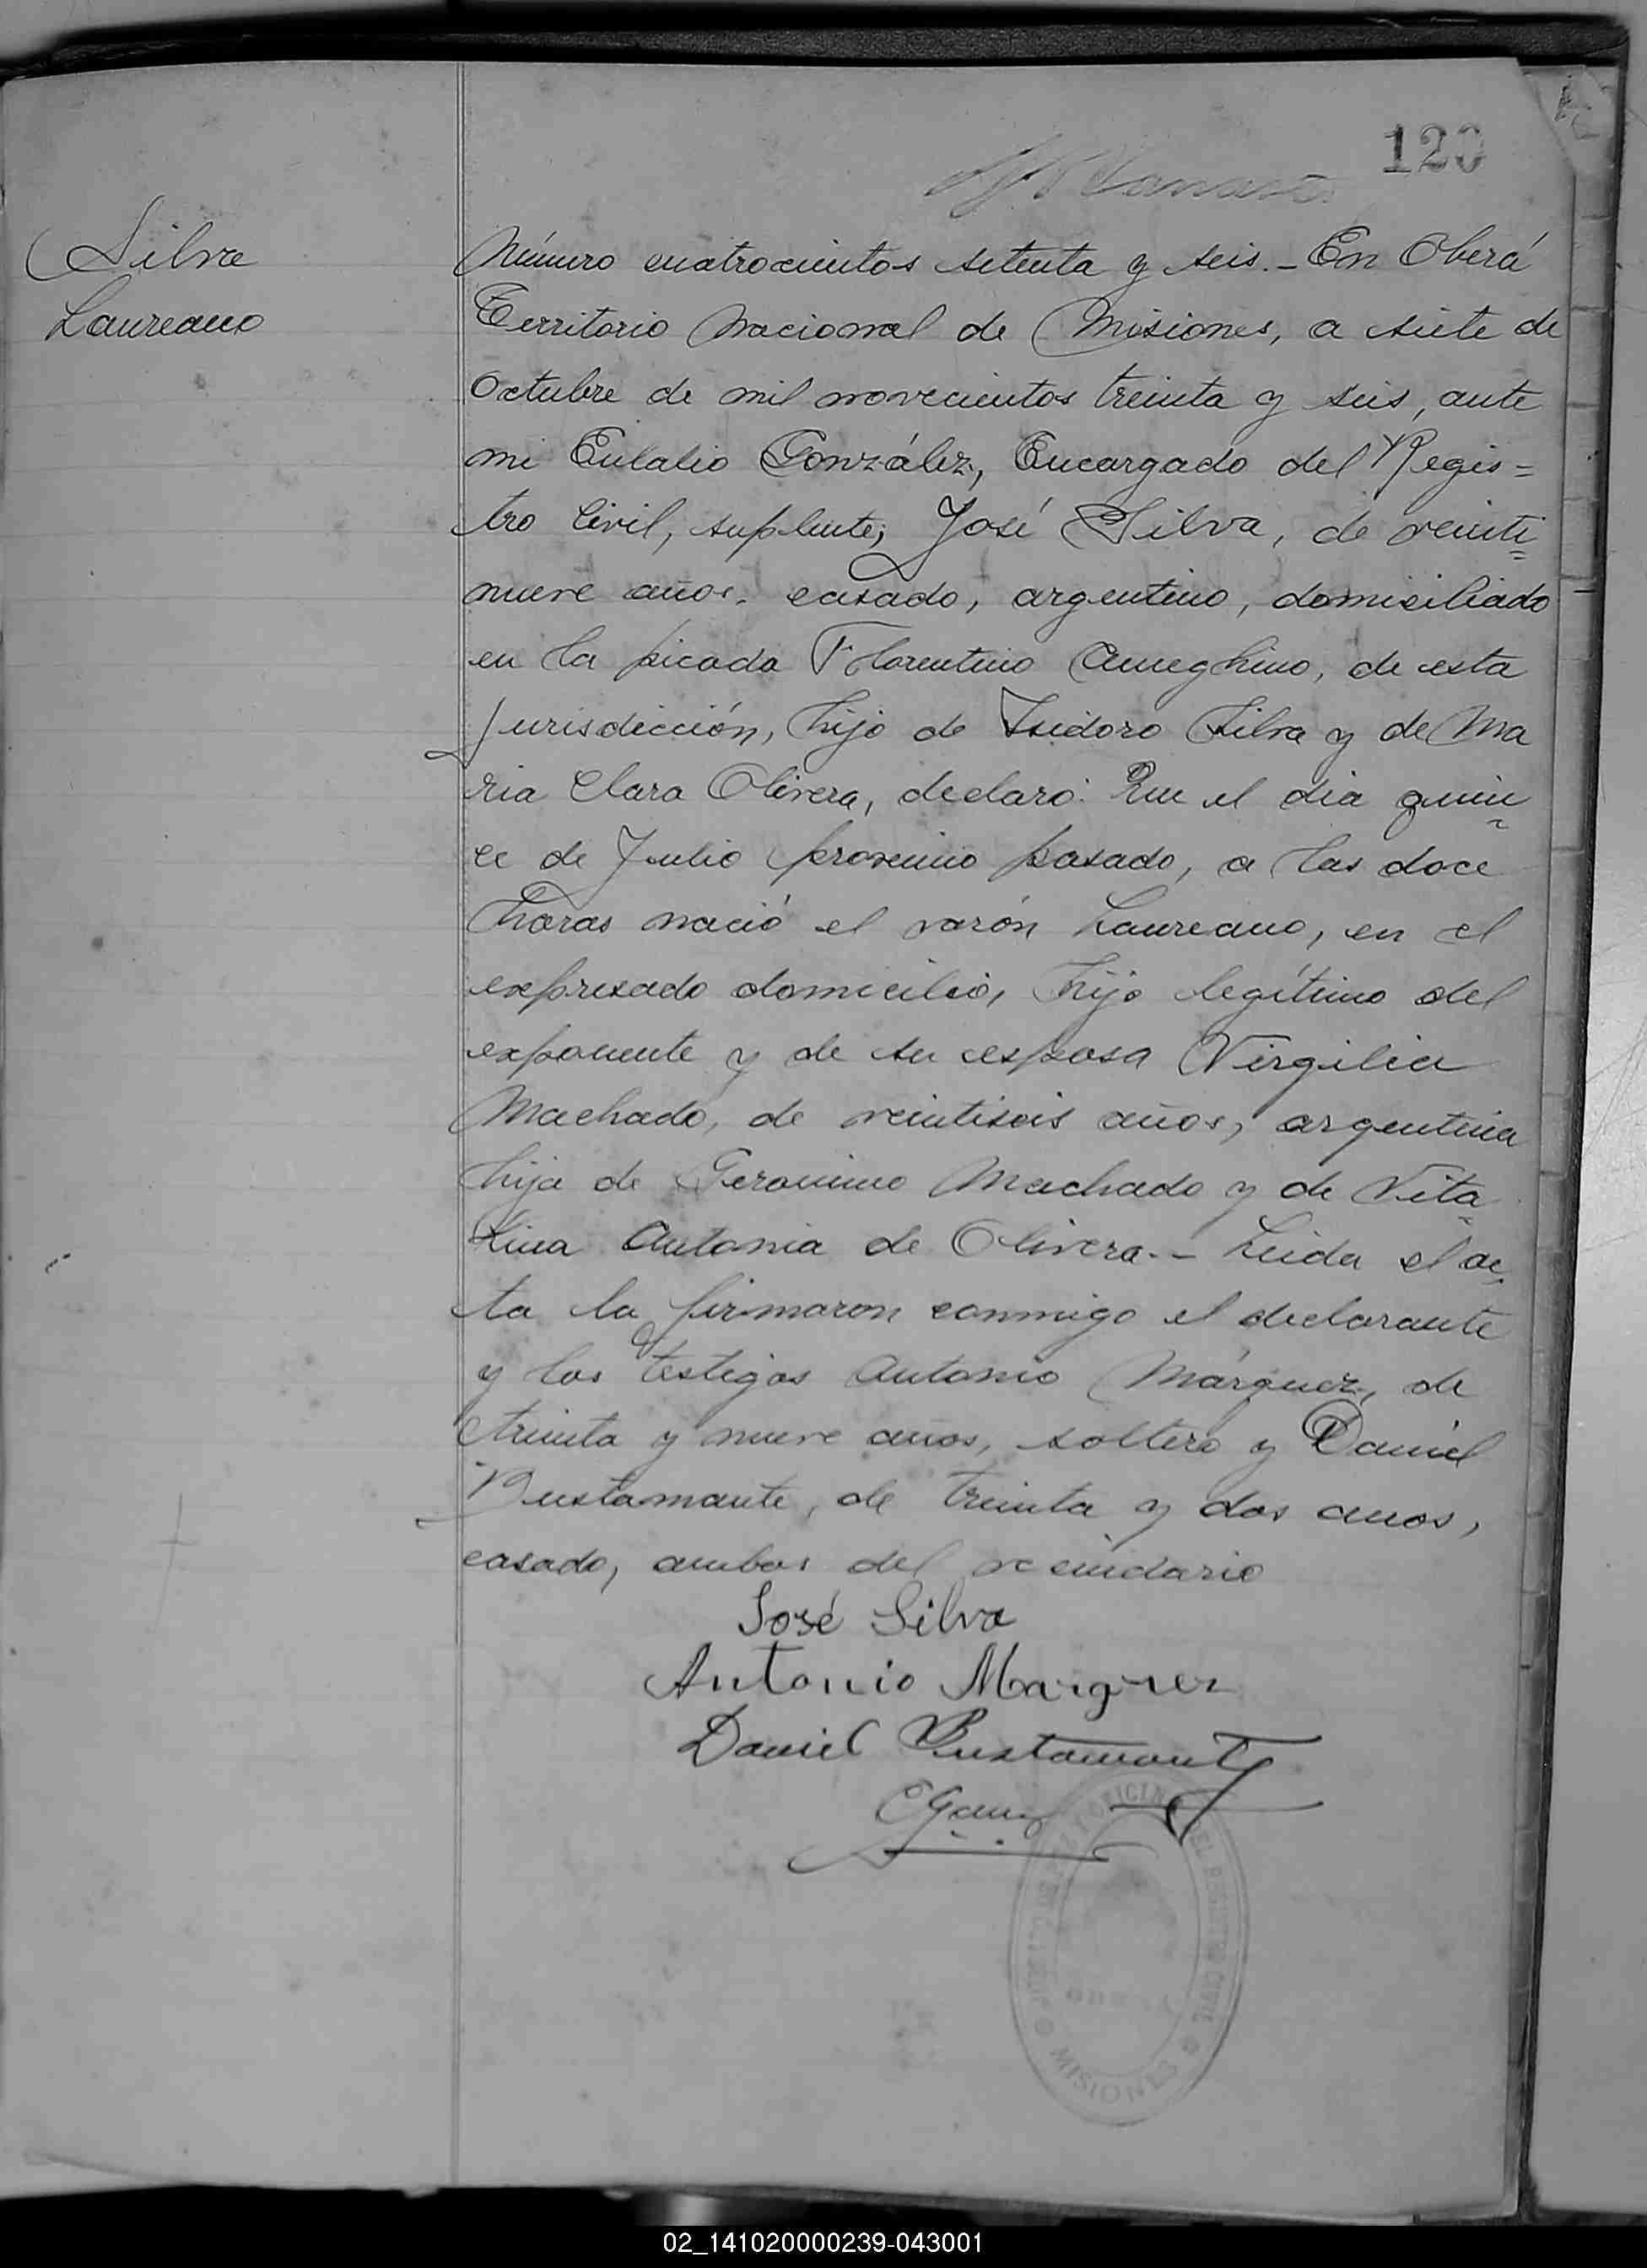 120
Silva
Laureano
Número cuatrocientos setenta y seis.- En Oberá
Territorio Nacional de Misiones, a siete de
Octubre de mil novecientos treinta y seis, ante
mi Eulalio González, Encargado del Regis=
tro Civil, suplente; José Silva, de veinti=
nueve años, casado, argentino, domiciliado
en la picada Florentino Ameghino, de esta
jurisdicción, hijo de Isidoro Silva y de Ma
ria Clara Olivera, declaró: Que el dia quin-
ce de Julio proximo pasado, a las doce
horas nació el varón Laureano, en el
expresado domicilio, hijo legítimo del
exponente y de su esposa Virgilia
Machado, de veintiseis años, argentina
hija de Geronimo Machado y de Vita-
lina Antonia de Olivera.- Leida el ac-
ta la firmaron conmigo el declarante
y los testigos Antonio Márquez, de
treinta y nueve años, soltero y Daniel
Bustamante, de treinta y dos anos,
casado, ambos del vecindario
José Silva
Antonio Marquez
Daniel Bustamante
OFICINA DEL REGISTRO CIVIL
MISIONES
02_141020000239-043001